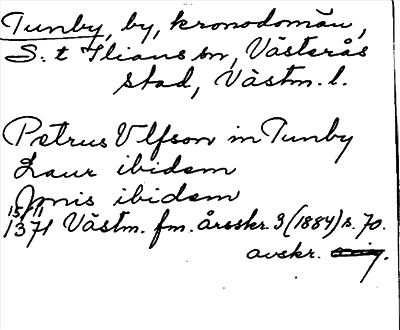 Tunby, by, kronodomän,
S:t Ilians sn, Västerås
stad, Västm. l.
Petrus Ulfson in Tunby
Laur ibidem
Jonis ibidem
15/11
1371 Västm. fm. årsskr. 3 (1884) s. 70.
avskr.